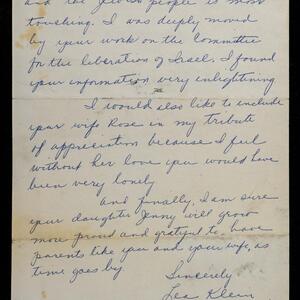 and the Jewish people is most
touching. I was deeply moved
by your work on the Committee
for the liberation of Israel. I found
your information very enlightening
I would also like to include
your wife Rose in my tribute
of appreciation because I feel
without her love you would have
been very lonely
And finally, I am sure
your daughter Jenny will grow
more proud and grateful to have
parents like you and your wife, as
time goes by.
Sincerely
Lea Klein